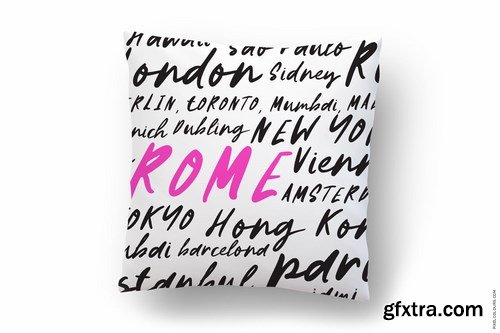 Hawaii Sao Paulo
London Sidney R
ERLIN, tORONTO, Mumbai, MA
nich Dubling NEW YO
ROME Vienn
AMSTERD
TOKYO Hong Kon
mbai barcelona
stanbul pari
gfxtra.com